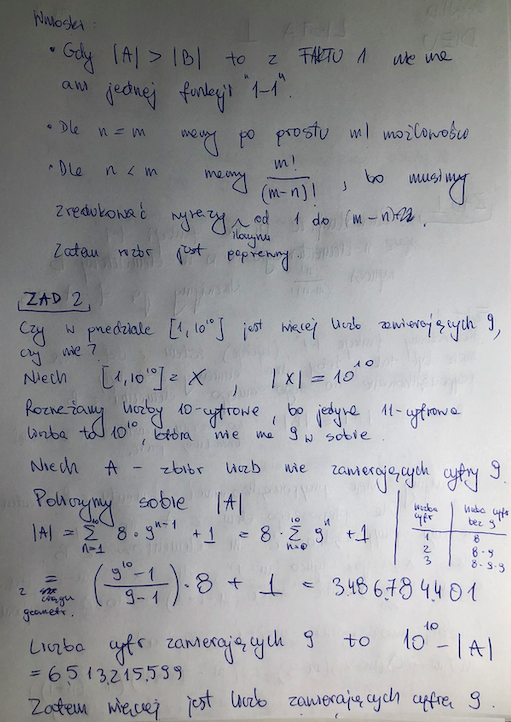 Wnioski:
• Gdy |A| > |B| to z FAKTU 1 nie ma
ani jednej funkcji "1-1".
• Dla n = m mamy po prostu m! możliwości
• Dla n < m mamy m!/(m-n)!, bo musimy
zredukować wyrazy iloczynu od 1 do (m-n)
Zatem wzór jest poprawny.
ZAD 2
Czy w przedziale [1, 10^10] jest więcej liczb zawierających 9,
czy nie?
Niech [1, 10^10] = X, |X| = 10^10
Rozważamy liczby 10-cyfrowe, bo jedyna 11-cyfrowa
liczba to 10^10, która nie ma 9 w sobie.
Niech A - zbiór liczb nie zawierających cyfry 9.
Policzymy sobie |A|
|A| = ∑_{n=1}^{10} 8·9^{n-1} + 1 = 8·∑_{n=0}^{10} 9^n + 1
liczba cyfr | liczba cyfr bez 9
1 | 8
2 | 8·9
3 | 8·9·9
= ((9^10 - 1)/(9-1))·8 + 1 = 3.486.784.401
z ciągu geometr.
Liczba cyfr zawierających 9 to 10^10 - |A|
= 6.513.215.599
Zatem więcej jest liczb zawierających cyfrę 9.